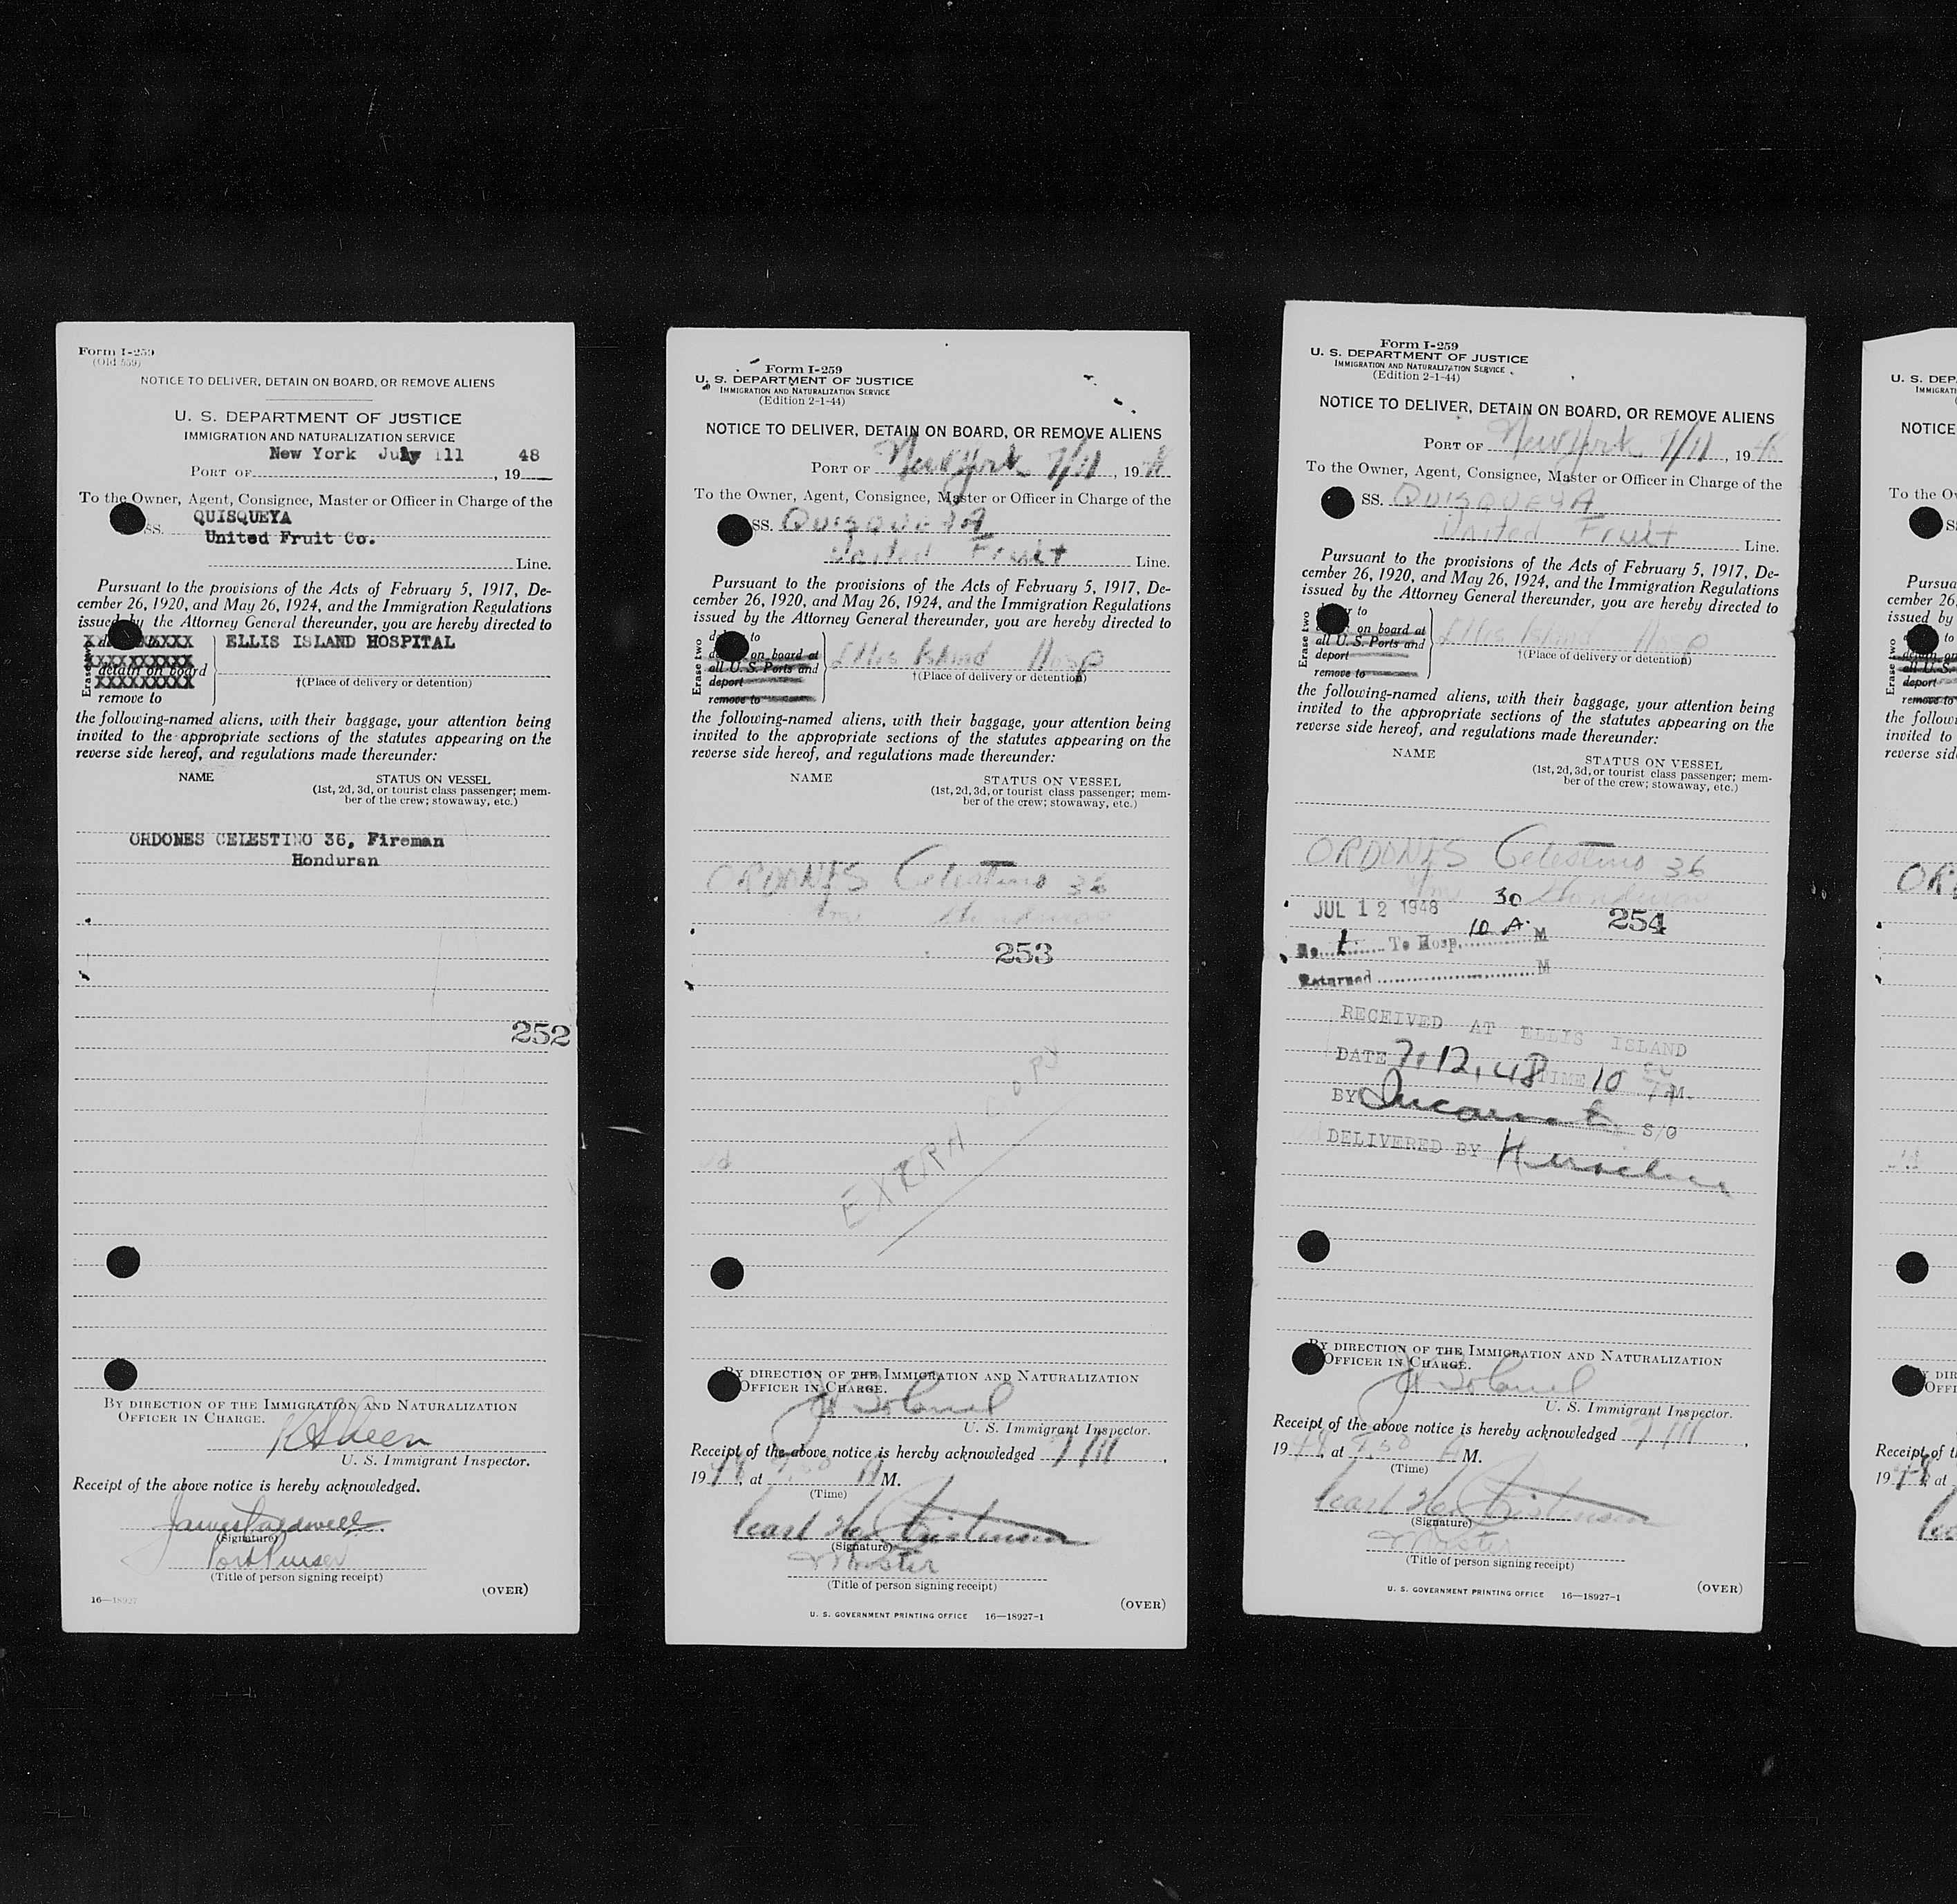 Form I-259
(Old 559)
NOTICE TO DELIVER, DETAIN ON BOARD, OR REMOVE ALIENS
U. S. DEPARTMENT OF JUSTICE
IMMIGRATION AND NATURALIZATION SERVICE
New York July 11 48
PORT OF , 19
To the Owner, Agent, Consignee, Master or Officer in Charge of the
QUISQUEYA
SS.
United Fruit Co.
Line.
Pursuant to the provisions of the Acts of February 5, 1917, De-
cember 26, 1920, and May 26, 1924, and the Immigration Regulations
issued by the Attorney General thereunder, you are hereby directed to
Erase two
ELLIS ISLAND HOSPITAL
detain on board
†(Place of delivery or detention)
remove to
the following-named aliens, with their baggage, your attention being
invited to the appropriate sections of the statutes appearing on the
reverse side hereof, and regulations made thereunder:
NAME STATUS ON VESSEL
(1st, 2d, 3d, or tourist class passenger; mem-
ber of the crew; stowaway, etc.)
ORDONES CELESTINO 36, Fireman
Honduran
252
BY DIRECTION OF THE IMMIGRATION AND NATURALIZATION
OFFICER IN CHARGE.
U. S. Immigrant Inspector.
Receipt of the above notice is hereby acknowledged.
(Signature)
Port Purser
(Title of person signing receipt)
(OVER)
16—18927
Form I-259
U. S. DEPARTMENT OF JUSTICE
IMMIGRATION AND NATURALIZATION SERVICE
(Edition 2-1-44)
NOTICE TO DELIVER, DETAIN ON BOARD, OR REMOVE ALIENS
PORT OF New York 7/11, 1948
To the Owner, Agent, Consignee, Master or Officer in Charge of the
SS. QUISQUEYA
United Fruit Line.
Pursuant to the provisions of the Acts of February 5, 1917, De-
cember 26, 1920, and May 26, 1924, and the Immigration Regulations
issued by the Attorney General thereunder, you are hereby directed to
Erase two
to
on board at
all U. S. Ports and
deport
remove to
Ellis Island Hosp
†(Place of delivery or detention)
the following-named aliens, with their baggage, your attention being
invited to the appropriate sections of the statutes appearing on the
reverse side hereof, and regulations made thereunder:
NAME STATUS ON VESSEL
(1st, 2d, 3d, or tourist class passenger; mem-
ber of the crew; stowaway, etc.)
ORDONES Celestino 36
253
EXTRA COPY
BY DIRECTION OF THE IMMIGRATION AND NATURALIZATION
OFFICER IN CHARGE.
U. S. Immigrant Inspector.
Receipt of the above notice is hereby acknowledged 7/11,
1948, at 9:30 A M.
(Time)
(Signature)
Master
(Title of person signing receipt)
(OVER)
U. S. GOVERNMENT PRINTING OFFICE 16—18927-1
Form I-259
U. S. DEPARTMENT OF JUSTICE
IMMIGRATION AND NATURALIZATION SERVICE
(Edition 2-1-44)
NOTICE TO DELIVER, DETAIN ON BOARD, OR REMOVE ALIENS
PORT OF New York 7/11, 1948
To the Owner, Agent, Consignee, Master or Officer in Charge of the
SS. QUISQUEYA
United Fruit Line.
Pursuant to the provisions of the Acts of February 5, 1917, De-
cember 26, 1920, and May 26, 1924, and the Immigration Regulations
issued by the Attorney General thereunder, you are hereby directed to
Erase two
to
on board at
all U. S. Ports and
deport
remove to
Ellis Island Hosp
†(Place of delivery or detention)
the following-named aliens, with their baggage, your attention being
invited to the appropriate sections of the statutes appearing on the
reverse side hereof, and regulations made thereunder:
NAME STATUS ON VESSEL
(1st, 2d, 3d, or tourist class passenger; mem-
ber of the crew; stowaway, etc.)
ORDONES Celestino 36
JUL 12 1948 30
254
No. To Hosp. 10 A. M
Returned M
RECEIVED AT ELLIS ISLAND
DATE 7.12.48 TIME 10 M.
BY S/O
DELIVERED BY
BY DIRECTION OF THE IMMIGRATION AND NATURALIZATION
OFFICER IN CHARGE.
U. S. Immigrant Inspector.
Receipt of the above notice is hereby acknowledged 7/11,
1948, at 9:30 A M.
(Time)
(Signature)
Master
(Title of person signing receipt)
(OVER)
U. S. GOVERNMENT PRINTING OFFICE 16—18927-1
U. S. DEP
IMMIGRATI
NOTICE
To the O
S
Pursua
cember 26,
issued by
Erase two
to
all U. S.
deport
remove to
the follow
invited to
reverse sid
OR
Receipt of t
19 at